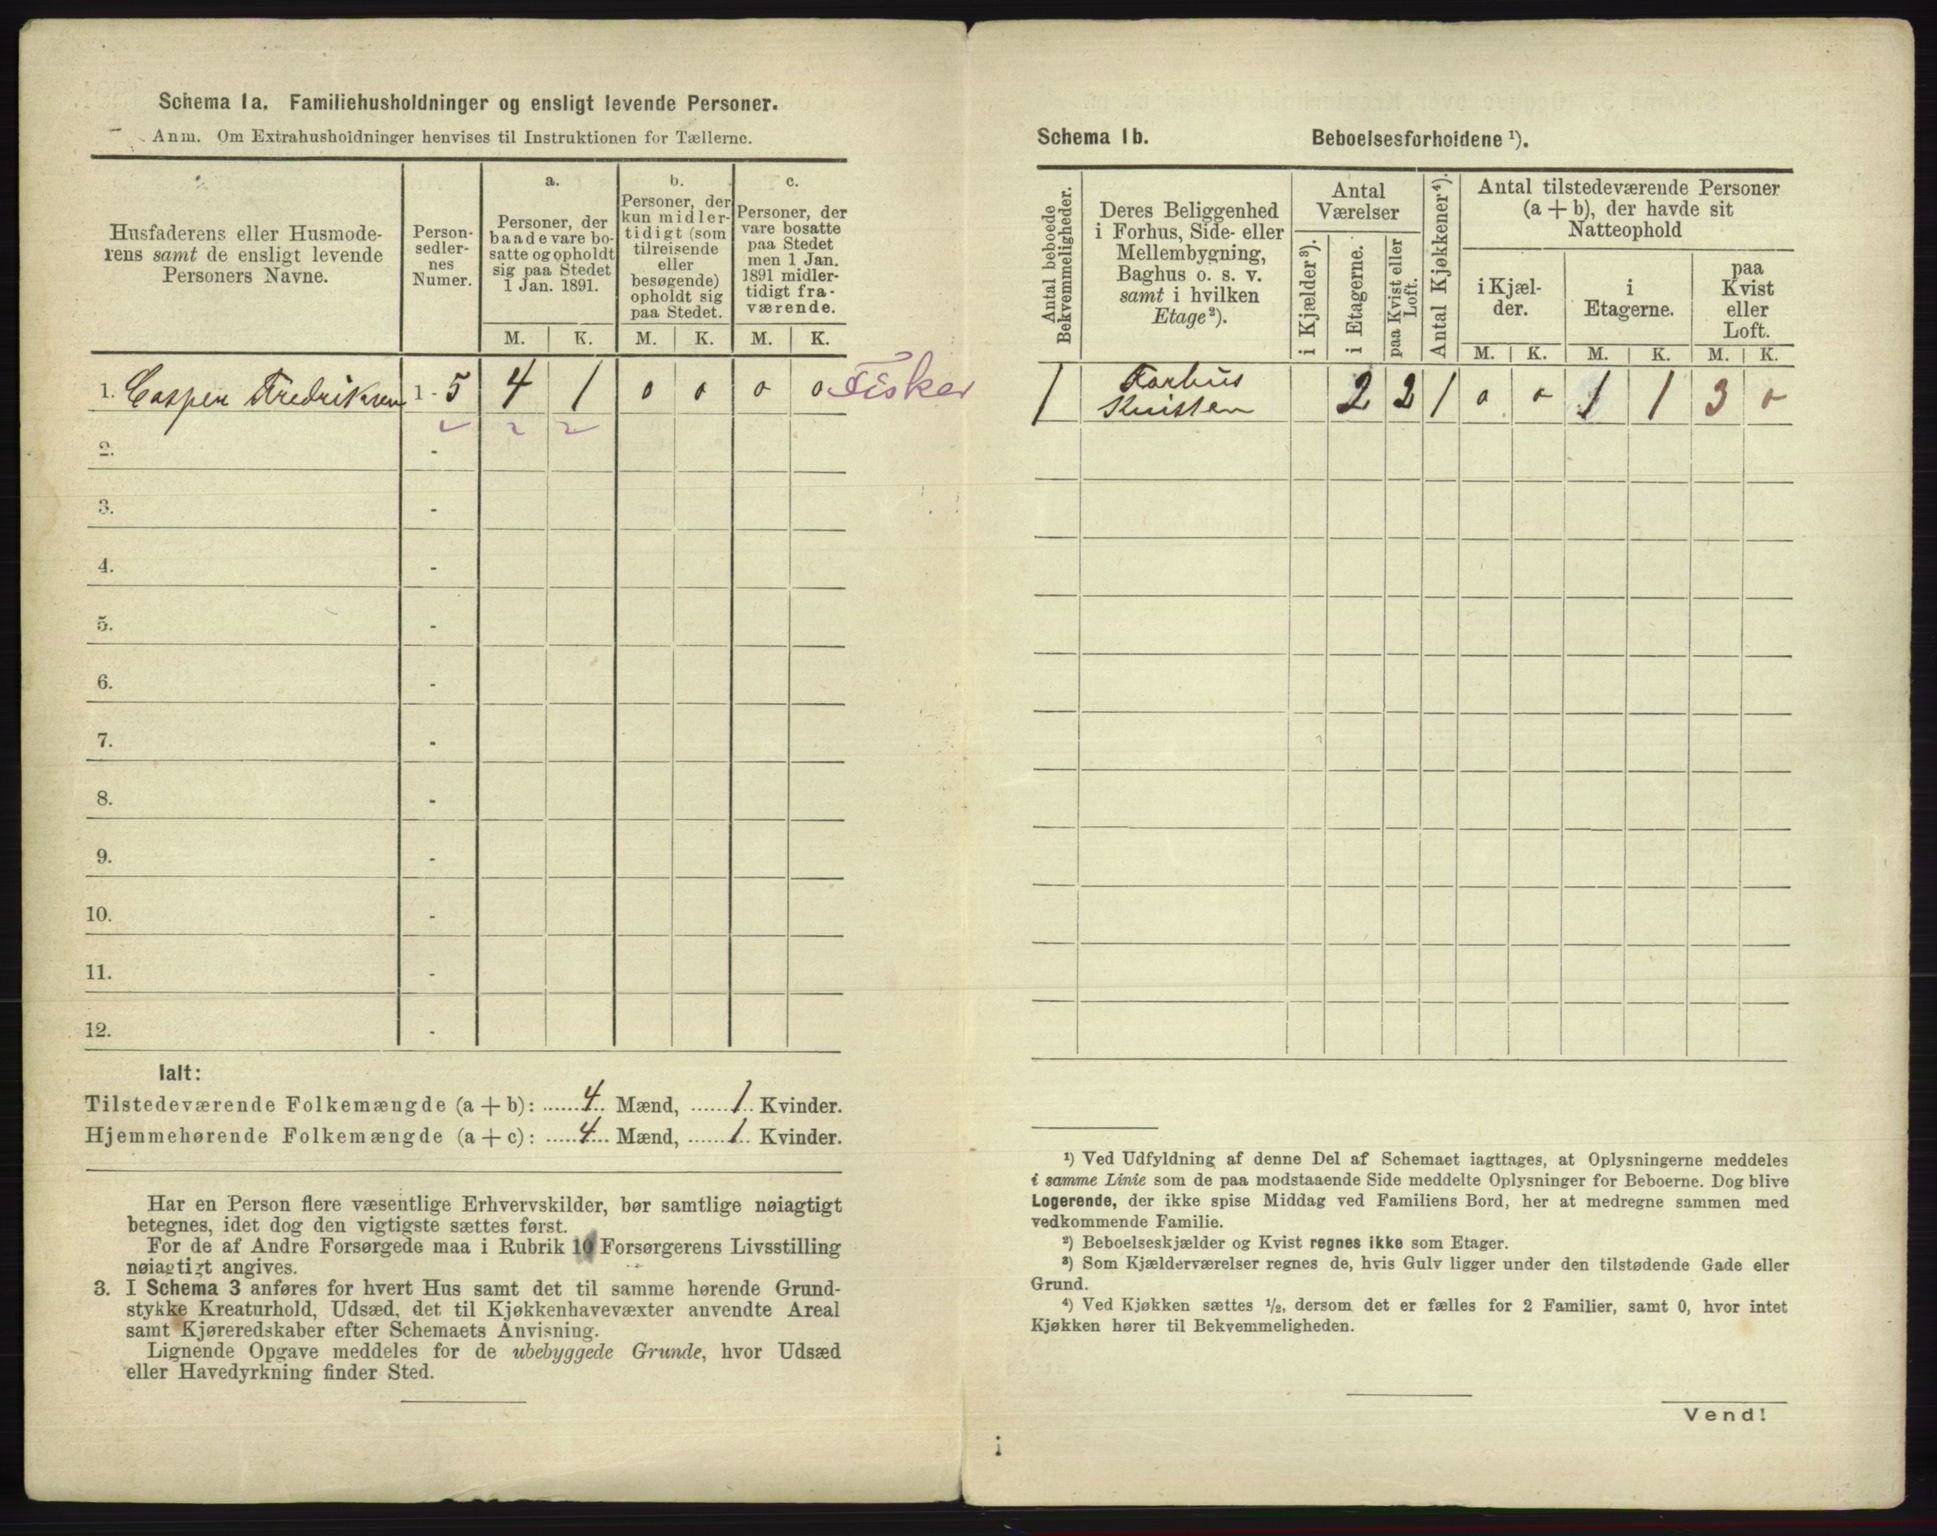 Schema 1a. Familiehusholdninger og ensligt levende Personer.
Anm. Om Extrahusholdninger henvises til Instruktionen for Tællerne.
Husfaderens eller Husmoderens samt de ensligt levende Personers Navne.
Personsedlernes Numer.
a.
Personer, der
baade vare bo-
satte og opholdt
sig paa Stedet
1 Jan. 1891.
b.
Personer, der
kun midler-
tidigt (som
tilreisende
eller
besøgende)
opholdt sig
paa Stedet.
c.
Personer, der
vare bosatte
paa Stedet
men 1 Jan.
1891 midler-
tidigt fra-
værende.
M. K. M. K. M. K.
1. Casper Fredriksen 1 - 5 4 1 0 0 0 0 Fisker
2. -
3. -
4. -
5. -
6. -
7. -
8. -
9. -
10. -
11. -
12. -
Ialt:
Tilstedeværende Folkemængde (a + b): 4 Mænd, 1 Kvinder.
Hjemmehørende Folkemængde (a + c): 4 Mænd, 1 Kvinder.
Har en Person flere væsentlige Erhvervskilder, bør samtlige nøiagtigt
betegnes, idet dog den vigtigste sættes først.
For de af Andre Forsørgede maa i Rubrik 10 Forsørgerens Livsstilling
nøiagtigt angives.
3. I Schema 3 anføres for hvert Hus samt det til samme hørende Grund-
stykke Kreaturhold, Udsæd, det til Kjøkkenhavevæxter anvendte Areal
samt Kjøreredskaber efter Schemaets Anvisning.
Lignende Opgave meddeles for de ubebyggede Grunde, hvor Udsæd
eller Havedyrkning finder Sted.
Schema 1b. Beboelsesforholdene ¹).
Antal beboede
Bekvemmeligheder.
Deres Beliggenhed
i Forhus, Side- eller
Mellembygning,
Baghus o. s. v.
samt i hvilken
Etage²).
Antal
Værelser
i Kjælder³).
i Etagerne.
paa Kvist eller
Loft.
Antal Kjøkkener⁴).
Antal tilstedeværende Personer
(a + b), der havde sit
Natteophold
i Kjæl-
der.
i
Etagerne.
paa
Kvist
eller
Loft.
M. K. M. K. M. K.
1 Forhus
Kvisten 2 2 1 0 0 1 1 3 0
¹) Ved Udfyldning af denne Del af Schemaet iagttages, at Oplysningerne meddeles
i samme Linie som de paa modstaaende Side meddelte Oplysninger for Beboerne. Dog blive
Logerende, der ikke spise Middag ved Familiens Bord, her at medregne sammen med
vedkommende Familie.
²) Beboelseskjælder og Kvist regnes ikke som Etager.
³) Som Kjælderværelser regnes de, hvis Gulv ligger under den tilstødende Gade eller
Grund.
⁴) Ved Kjøkken sættes ½, dersom det er fælles for 2 Familier, samt 0, hvor intet
Kjøkken hører til Bekvemmeligheden.
Vend!